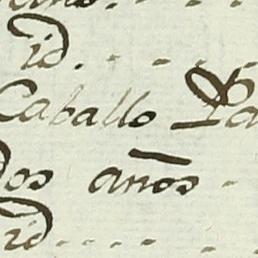 id. - - - -
Caballo Pa
Dos años -
id - - - -